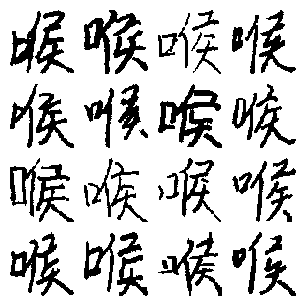 喉喉喉喉
喉喉喉喉
喉喉喉喉
喉喉喉喉